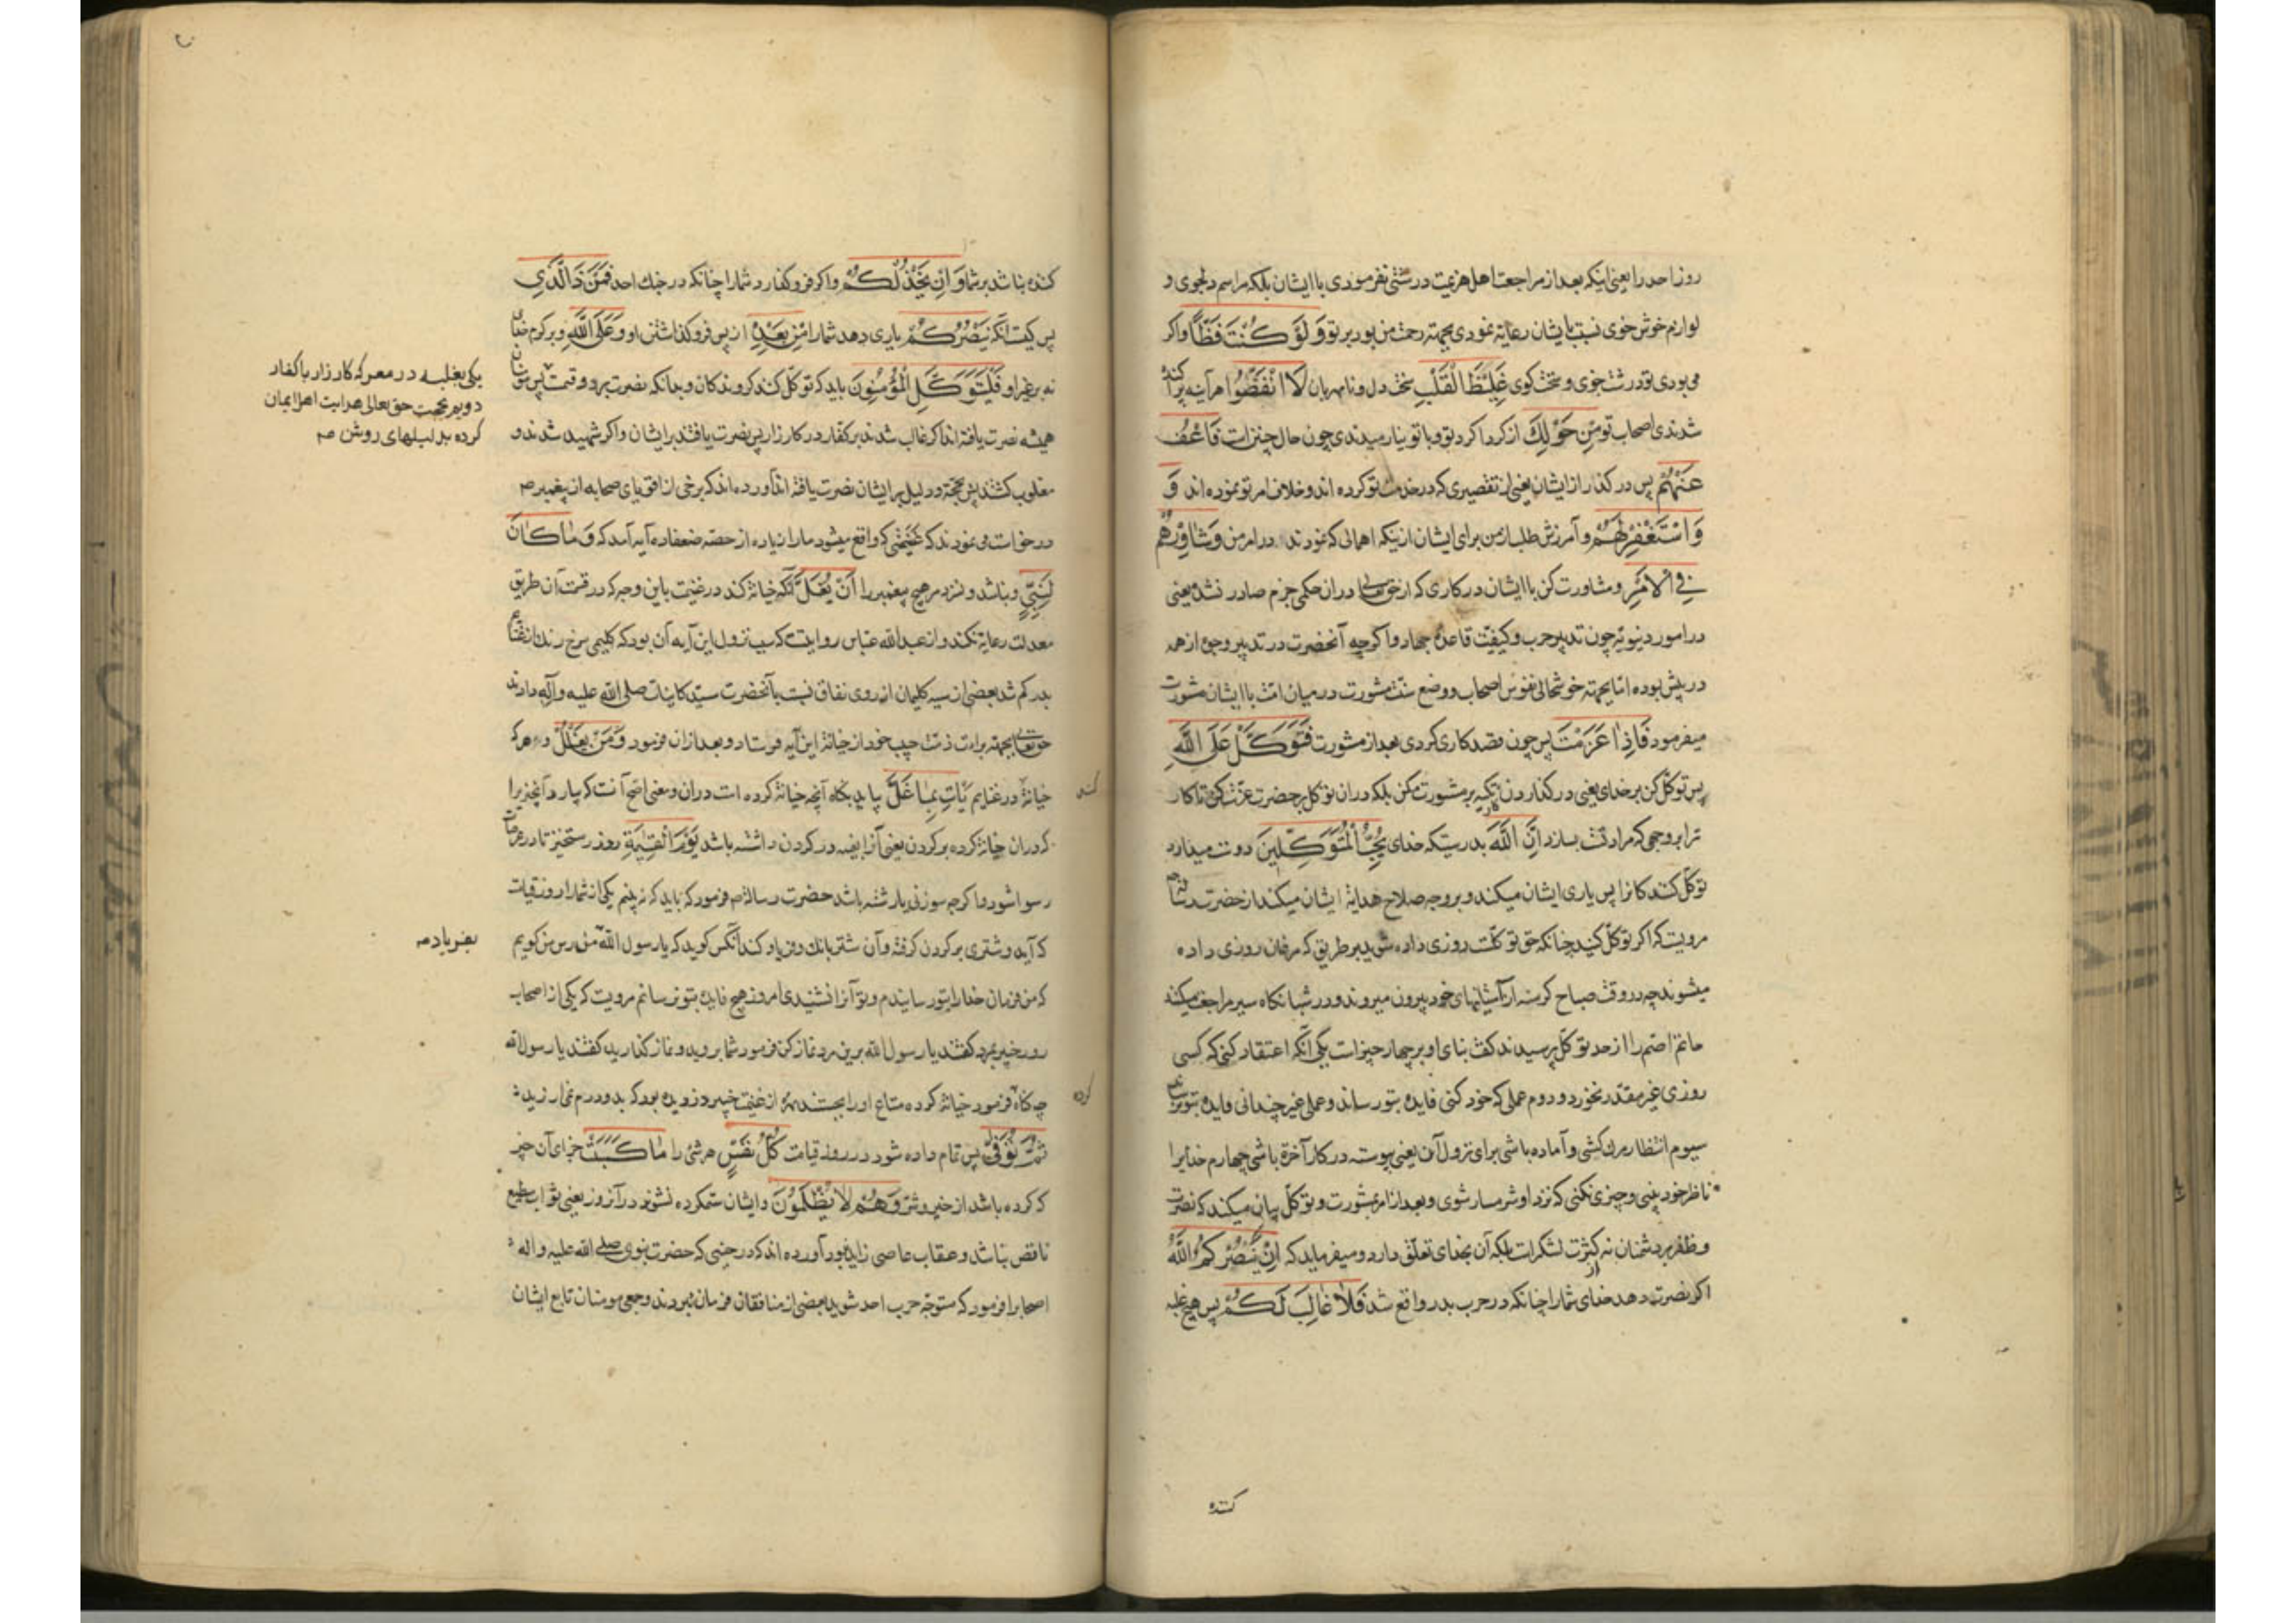 روز احد را یعنی اینکه بعد از مراجعت اهل هزیمت درشتی نفرمودی با ایشان بلکه مراسم دلجوی و
لوازم خوش خوی نسبت بایشان رعایة نمودی بجهة رحمت من بود بر تو وَلَوْ كُنْتَ فَظًّا و اکر
می بودی تو درشت خوی و سخت کوی غَلِيظَ الْقَلْبِ سخت دل و نامهربان لَا انْفَضُّوا هر آینه پراکنده
شدندی اصحاب تو مِنْ حَوْلِكَ از کردا کرد تو و با تو نیارمیدندی چون حال چنین است فَاعْفُ
عَنْهُمْ پس در کذار از ایشان یعنی از تقصیری که در خدمت تو کرده اند و خلاف امر تو نموده اند وَ
وَاسْتَغْفِرْ لَهُمْ و آمرزش طلب از من برای ایشان از نیکه اهمالی که نمودند در امر من وَشَاوِرْهُمْ
فِي الْأَمْرِ و مشاورت کن با ایشان در کاری که از حق تعالی دران حکمی جزم صادر نشده یعنی
در امور دنیویه چون تدبیر حرب و کیفیت قاعدهٔ جهاد و اکر چه آنحضرت در تدبیر و جزء از همه
در پیش بوده اما بجهة خوشحالی نفوس اصحاب و وضع سنت مشورت در میان امت با ایشان مشورت
میفرمود فَإِذَا عَزَمْتَ پس چون قصد کاری کردی بعد از مشورت فَتَوَكَّلْ عَلَى اللَّهِ
پس توکل کن بر خدای یعنی در کذاردن کار تکیه بر مشورت مکن بلکه دران توکل بر حضرت عزت کن تا کار
ترا بر وجهی که مراد تست بسازد إِنَّ اللَّهَ بدرستیکه خدای يُحِبُّ الْمُتَوَكِّلِينَ دوست میدارد
توکل کنندکانرا پس یاری ایشان میکند و بر وجه صلاح هدایة ایشان میکند از حضرت
مرویست که اکر توکل کنید چنانکه حق توکلست روزی داده شوید بر طریقی که مرغان روزی داده
میشوند چه در وقت صباح کرسنه از آشیانهای خود بیرون میروند و در شبانکاه سیر مراجعت میکنند
حاتم اصم را از حد توکل پرسیدند کفت بنای او بر چهار چیز است یکی آنکه اعتقاد کنی که کسی
روزی غیر مقدر نخورد و دوم عملی که خود کنی فایده بتو رساند و عملی غیر چندانی فایده بتو نرساند
سیوم انتظار مرک کشی و آماده باشی برای نزول آن یعنی پیوسته در کار آخرة باشی چهارم خدایرا
ناظر خود بینی و چیزی نکنی که نزد او شرمسار شوی و بعد از امر بمشورت و توکل بیان میکند که نصرت
و ظفر بر دشمنان نه از کثرت لشکر است بلکه آن بخدای تعلق دارد و میفرماید که إِنْ يَنْصُرْكُمُ اللَّهُ
اکر نصرت دهد خدای شما را چنانکه در حرب بدر واقع شد فَلَا غَالِبَ لَكُمْ پس هیچ غلبه
کننده
کننده نباشد بر شما وَإِنْ يَخْذُلْكُمْ و اکر فرو کذارد شما را چنانکه در جنک احد فَمَنْ ذَا الَّذِي
پس کیست آنکه يَنْصُرُكُمْ یاری دهد شما را مِنْ بَعْدِهِ از پس فرو کذاشتن او وَعَلَى اللَّهِ و بر کرم خدای
نه بر غیر او فَلْيَتَوَكَّلِ الْمُؤْمِنُونَ باید که توکل کنند کروندکان و بدانکه نصرت بر دو قسمست پس مؤمنان
همیشه نصرت یافته اند اکر غالب شدند بر کفار در کارزار پس نصرت یافتند بر ایشان و اکر شهید شدند و
مغلوب کشتند پس بحجة و دلیل بر ایشان نصرت یافته اند آورده اند که برخی از اقویای صحابه از پیغمبر ص
درخواست می نمودند که غنیمتی که واقع میشود ما را زیاده از حصه ضعفا ده آیه آمد که وَمَا كَانَ
لِنَبِيٍّ و نباشد و نسزد مر هیچ پیغمبر را أَنْ يَغُلَّ آنکه خیانة کند در غنیمت باین وجه که در قسمت آن طریق
معدلت رعایة نکند و از عبدالله عباس روایتست که سبب نزول این آیه آن بود که کلیمی سرخ رنک از غنائم
بدر کم شد بعضی از سیه کلیمان از روی نفاق نسبت بآنحضرت سید کاینات صلی الله علیه و آله دادند
حق تعالی بجهة براءت ذمت حبیب خود از خیانة این آیه فرستاد و بعد از ان فرمود وَمَنْ يَغْلُلْ و هر که
خیانة در غنایم يَأْتِ بِمَا غَلَّ بیاید بکناه آنچه خیانة کرده است دران و معنی اصح آنست که بیارد آنچیز را
که دران خیانة کرده بر کردن یعنی آنرا بفسه در کردن داشته باشد يَوْمَ الْقِيٰمَةِ روز رستخیز تا در عرصات
رسوا شود و اکر چه سوزنی یا رشته باشد حضرت رسالة ص فرمود که باید که نه بینم یکی از شما را روز قیامت
که آید و شتری بر کردن کرفته و آن شتر بانک و فریاد کند آنکس کوید که یا رسول الله من کویم
که من فرمان خدا را بتو رسانیدم و تو آنرا نشنیدی امروز هیچ فایده بتو نرسانم مرویست که یکی از اصحاب
روز خیبر بمرد کفتند یا رسول الله برین مرد نماز کن فرمود شما بروید و نماز کذارید کفتند یا رسول الله
چه کناه فرمود خیانة کرده متاع او را بجستند از غنیمت خیبر دزدیده بود که بدو درم نمی ارزید
ثُمَّ تُوَفَّى پس تمام داده شود در روز قیامت كُلُّ نَفْسٍ هر شی را مَا كَسَبَتْ جزای آن چیز
که کرده باشد از خیر و شر وَهُمْ لَا يُظْلَمُونَ و ایشان ستمکرده نشوند در آنروز یعنی ثواب مطیع
ناقص نباشد و عقاب عاصی زاید نبود آورده اند که در حینی که حضرت نبوی صلی الله علیه و اله
اصحابرا فرمود که متوجه حرب احد شوید بعضی از منافقان فرمان نبردند و جمعی مومنان تابع ایشان
یکی بغلبه در معرکه کارزار با کفار
دویم بحجت حق تعالی هدایت اهل ایمان
کرده بدلیلهای روشن صه
بفریاد صه